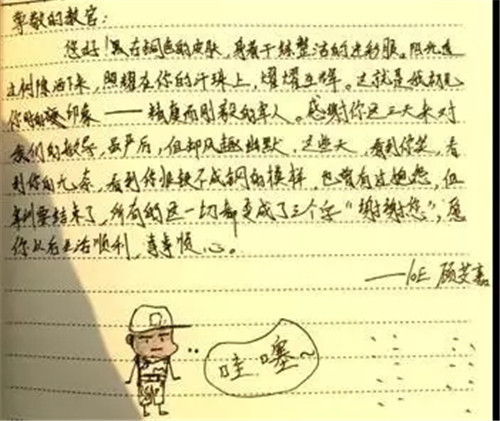 尊敬的教官：
您好！黑在铜色的皮肤，身着干练整洁的迷彩服。阳光透
过树隙洒下来，照耀在你的汗珠上，熠熠生辉。这就是最初见
你时的印象——精瘦而刚毅的军人。感谢你这三天来对
我们的教导，虽严后，但却风趣幽默，这些天，看到你笑，看
到你的无奈，看到你恨铁不成钢的模样，也曾有过抱怨，但
军训要结束了，所有的这一切都变成了三个字“谢谢您”，愿
你以后生活顺利，事事顺心。
——10E 顾艾嘉
哇噻~